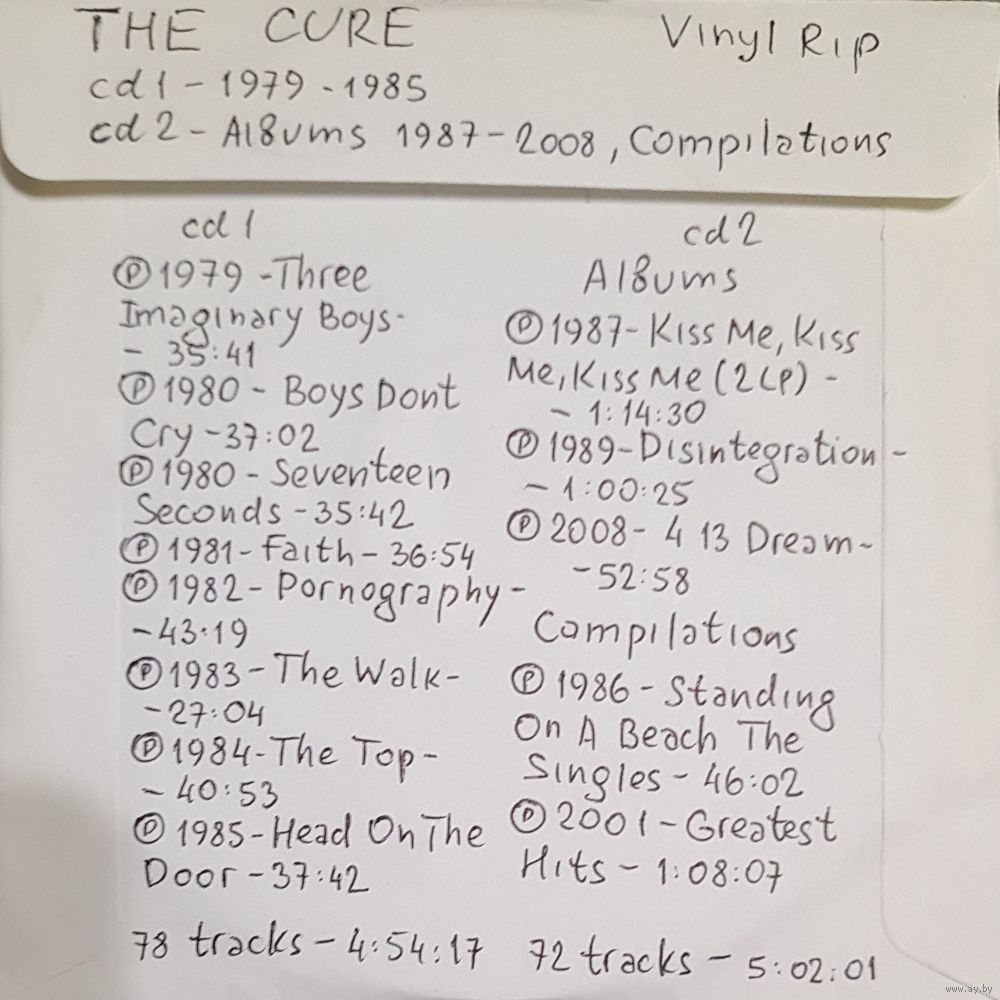 THE CURE Vinyl Rip
cd1 - 1979 - 1985
cd2 - Albums 1987-2008, Compilations
cd 1
Ⓟ 1979 - Three
Imaginary Boys -
- 35:41
Ⓟ 1980 - Boys Dont
Cry - 37:02
Ⓟ 1980 - Seventeen
Seconds - 35:42
Ⓟ 1981 - Faith - 36:54
Ⓟ 1982 - Pornography -
- 43:19
Ⓟ 1983 - The Walk -
- 27:04
Ⓟ 1984 - The Top -
- 40:53
Ⓟ 1985 - Head On The
Door - 37:42
78 tracks - 4:54:17
cd 2
Albums
Ⓟ 1987 - Kiss Me, Kiss
Me, Kiss Me (2LP) -
- 1:14:30
Ⓟ 1989 - Disintegration -
- 1:00:25
Ⓟ 2008 - 4 13 Dream -
- 52:58
Compilations
Ⓟ 1986 - Standing
On A Beach The
Singles - 46:02
Ⓟ 2001 - Greatest
Hits - 1:08:07
72 tracks - 5:02:01
www.ay.by